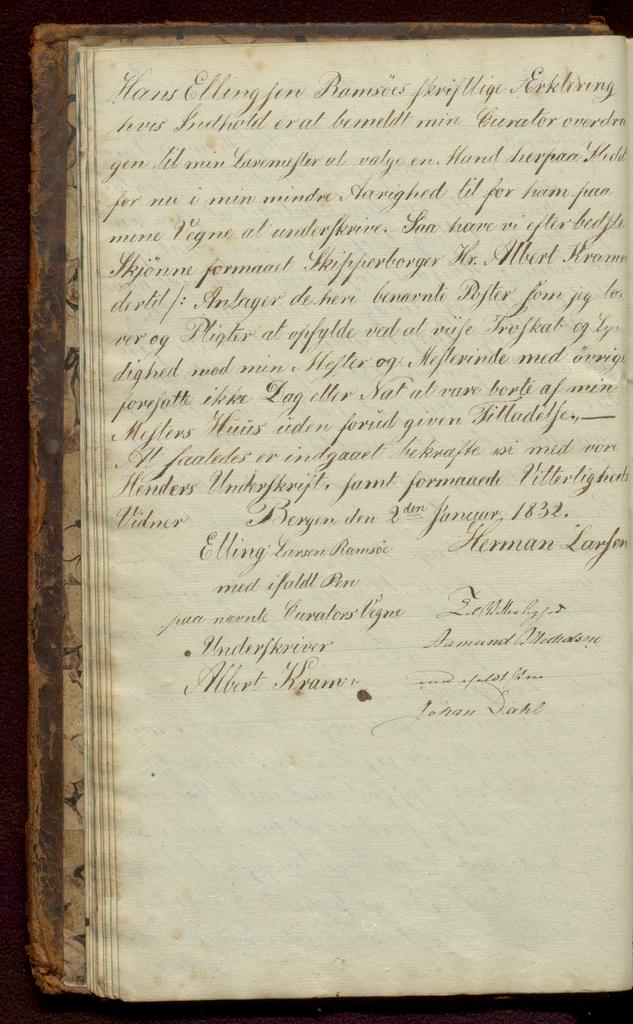 Hans Ellingsen Ramsöes skriftlige Ærklæring
hvis Indhold er at bemeldt min Curator overdra
gen til min Læremester at vælge en Mand herpaa Stedet
for nu i min mindre Aarighed til for ham paa
mine Vegne at underskrive. Saa have vi efter bedste
Skjönne formaaet Skipperborger Hr. Albert Kramer
dertil /: Antager de heri benævnte Poster som jeg lo-
ver og Pligter at opfylde ved at viise Troskab og Ly-
dighed mod min Mester og Mesterinde med övrige
foresatte ikke Dag eller Nat at være borte af min
Mesters Huus uden forud given Tilladelse. —
At saaledes er indgaaet bekræfte vi med vore
Hænders Underskrift, samt formaaede Vitterligheds
Vidner Bergen den 2den Januar 1832.
Elling Larsen Ramsöe Herman Larsen
med ifoldt Pen
paa nævnte Curators Vegne Til Vitterlighed
Underskriver Aamund Nicholsen
Albert Kramer med ifoldt Pen
Johan Dahl